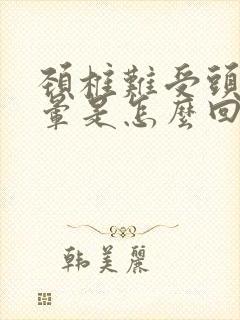 頸椎難受頭
暈是怎麼回
韩美麗